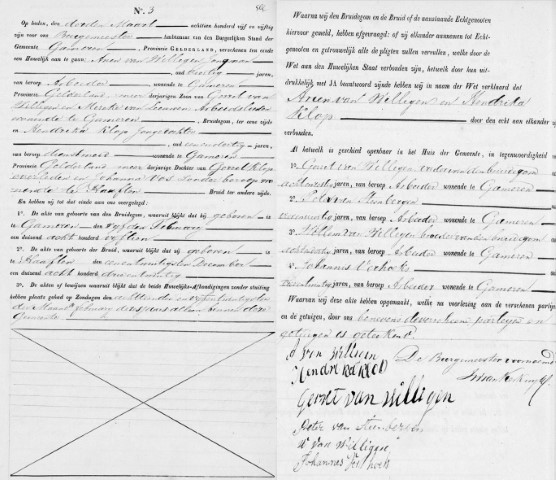 N.° 3
Op heden, den derden Maart achttien honderd vijf en vijftig
zijn voor ons Burgemeester Ambtenaar van den Burgerlijken Stand der
Gemeente Gameren, Provincie GELDERLAND, verschenen ten einde
een Huwelijk aan te gaan: Arien van Willigen jongman
jaren,
van beroep Arbeider wonende te Gameren
Provincie Gelderland meerderjarige Zoon van Gerrit van
Willigen en van Leeuwen Arbeidslieden
wonende te Gameren, Bruidegom, ter eene zijde
en Hendrika Klop Jongedochter
oud jaren,
van beroep Dienstmeid wonende te Gameren
Provincie Gelderland meerderjarige Dochter van Gerrit Klop
overleden en Johanna Vos zonder beroep wo-
nende te Haaften Bruid ter andere zijde.
En hebben zij tot dat einde aan ons overgelegd:
1°. De akte van geboorte van den Bruidegom, waaruit blijkt dat hij geboren is te
Gameren den vijfden Februarij
een duizend acht honderd vijftien
2°. De akte van geboorte der Bruid, waaruit blijkt dat zij geboren is te
Haaften den December
een duizend acht honderd
3°. De akten of bewijzen waaruit blijkt dat de beide Huwelijks-Afkondigingen zonder stuiting
hebben plaats gehad op Zondagen den achttienden en vijfentwintigsten
der Maand februarij dezes jaars alhier binnen deze
Gemeente
Waarna wij den Bruidegom en de Bruid of de aanstaande Echtgenooten
hiervoor gemeld, hebben afgevraagd: of zij elkander aannemen tot Echt-
genooten en getrouwelijk alle de pligten zullen vervullen, welke door de
Wet aan den Huwelijken Staat verbonden zijn, hetwelk door hun uit-
drukkelijk met JA beantwoord zijnde hebben wij in naam der Wet verklaard dat
Arien van Willigen en Hendrika
Klop door den echt aan elkander
verbonden zijn.
Al hetwelk is geschied openbaar in het Huis der Gemeente, in tegenwoordigheid
van 1°. Gerrit van Willigen vader van den bruidegom
jaren, van beroep Arbeider wonende te Gameren
2°. Peter van Steenbergen
jaren, van beroep Arbeider wonende te Gameren
3°. Willem van Willigen broeder van den bruidegom
jaren, van beroep Arbeider wonende te Gameren
4°. Johannis
jaren, van beroep Arbeider wonende te Gameren
Waarvan wij deze akte hebben opgemaakt, welke na voorlezing aan de verschenen partijen
en de getuigen, door ons benevens de verschenen partijen en
getuigen is geteekend.
A van Willigen
De Burgemeester voornoemd
Hendrika Klop
Gerrit van Willigen
Peter van Steenbergen
W van Willigen
Johannis